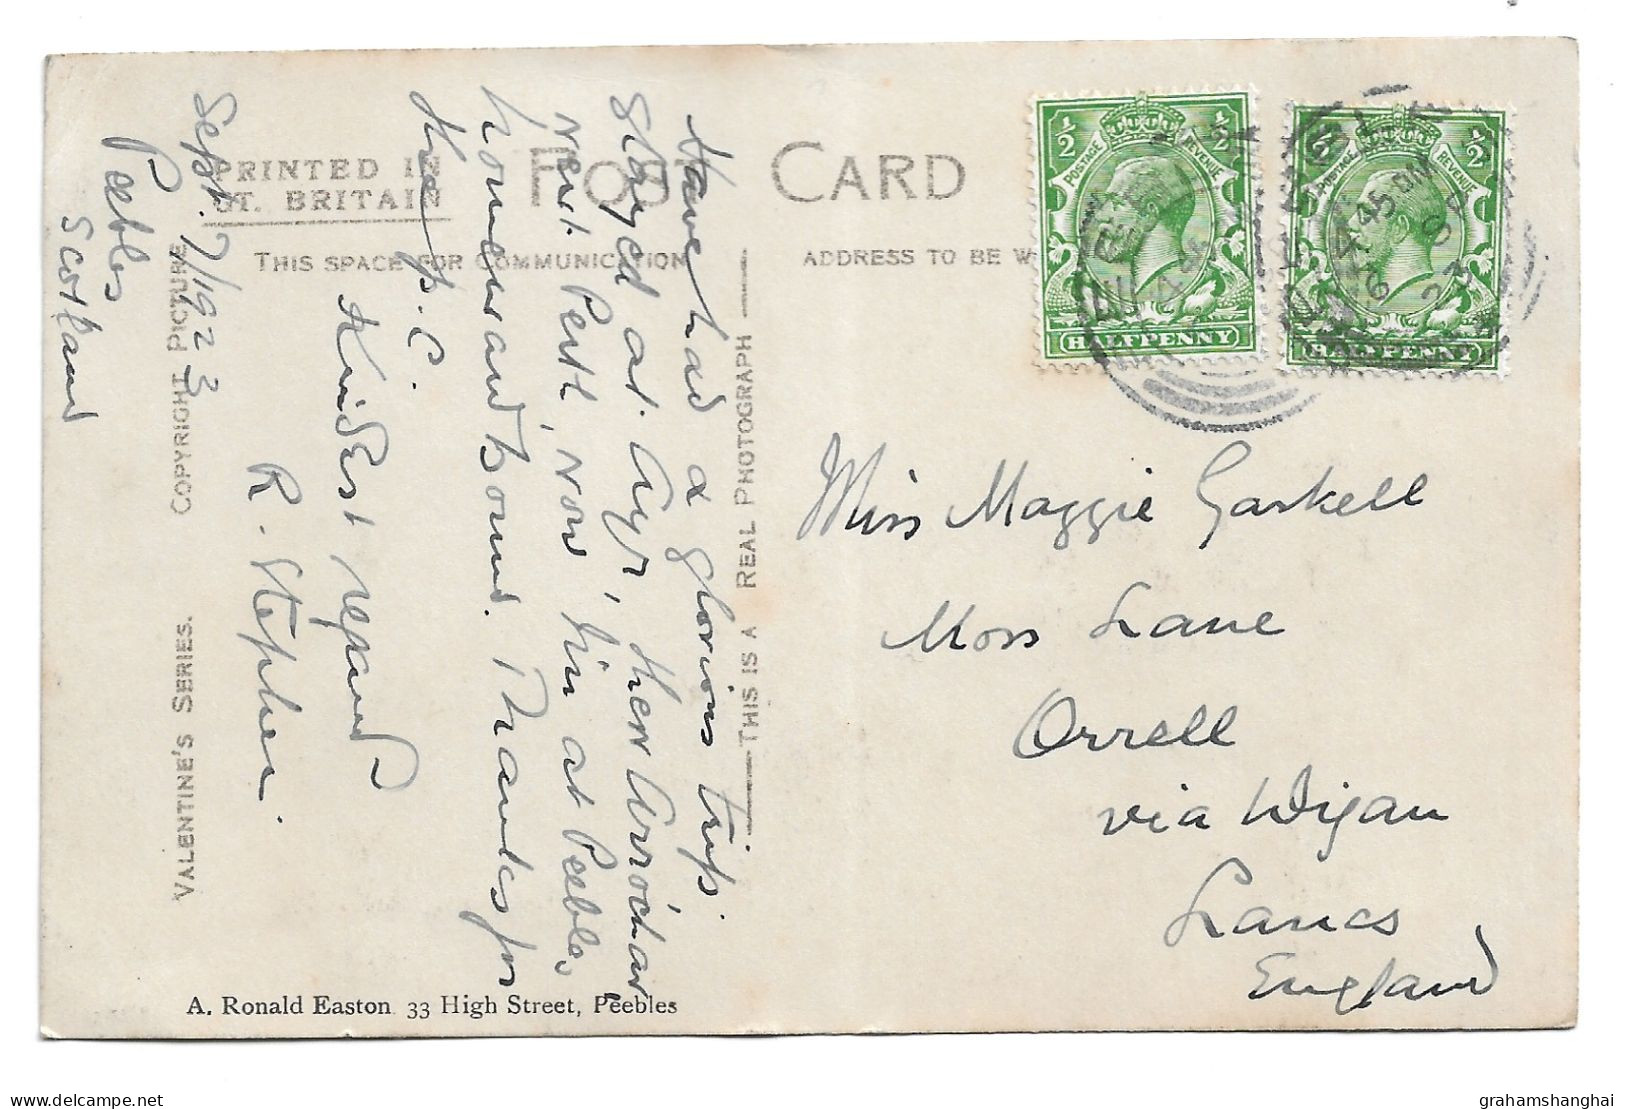 PRINTED IN
GT. BRITAIN
POST CARD
THIS SPACE FOR COMMUNICATION
ADDRESS TO BE W
COPYRIGHT PICTURE
VALENTINE'S SERIES.
THIS IS A REAL PHOTOGRAPH
Peebles
Scotland
Sept. 7/1923
Have had a glorious trip
stayed at Ayr, then Arrochar
next Perth, now I'm at Peebles,
homeward bound. Thanks for
the p.c.
Kindest regards
R. Stephen.
½ POSTAGE REVENUE ½
HALFPENNY
½ POSTAGE REVENUE ½
HALFPENNY
4 45 PM
Miss Maggie Gaskell
Moss Lane
Orrell
via Wigan
Lancs
England
A. Ronald Easton 33 High Street, Peebles
delcampe.net
grahamshanghai